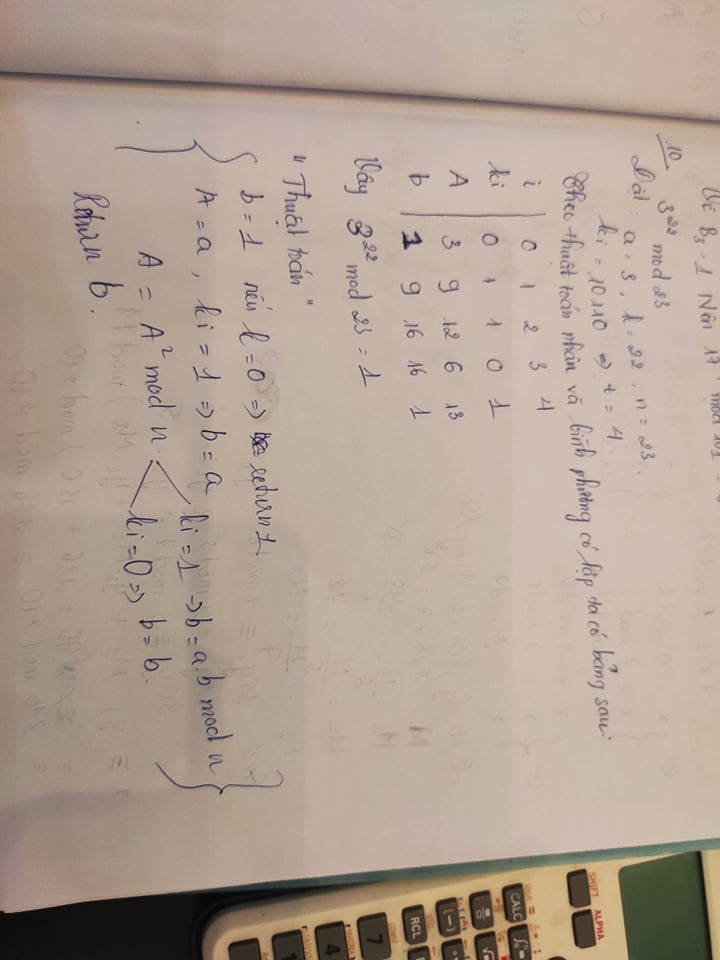 Vì B₃ = 1 Nên 17 mod 101 =
10, 3²² mod 23
Đặt: a = 3, k = 22, n = 23.
ki = 10110 => t = 4.
Theo thuật toán nhân và bình phương có lặp ta có bảng sau:
i | 0 1 2 3 4
ki | 0 1 1 0 1
A | 3 9 12 6 13
b | 1 9 16 16 1
Vây 3²² mod 23 = 1
" Thuật toán "
b = 1 nếu k = 0 => return 1.
A = a, ki = 1 => b = a
ki = 1 -> b = a.b mod n
A = A² mod n
ki = 0 => b = b.
Return b.
SHIFT ALPHA
CALC
(-)
RCL
7
4
1